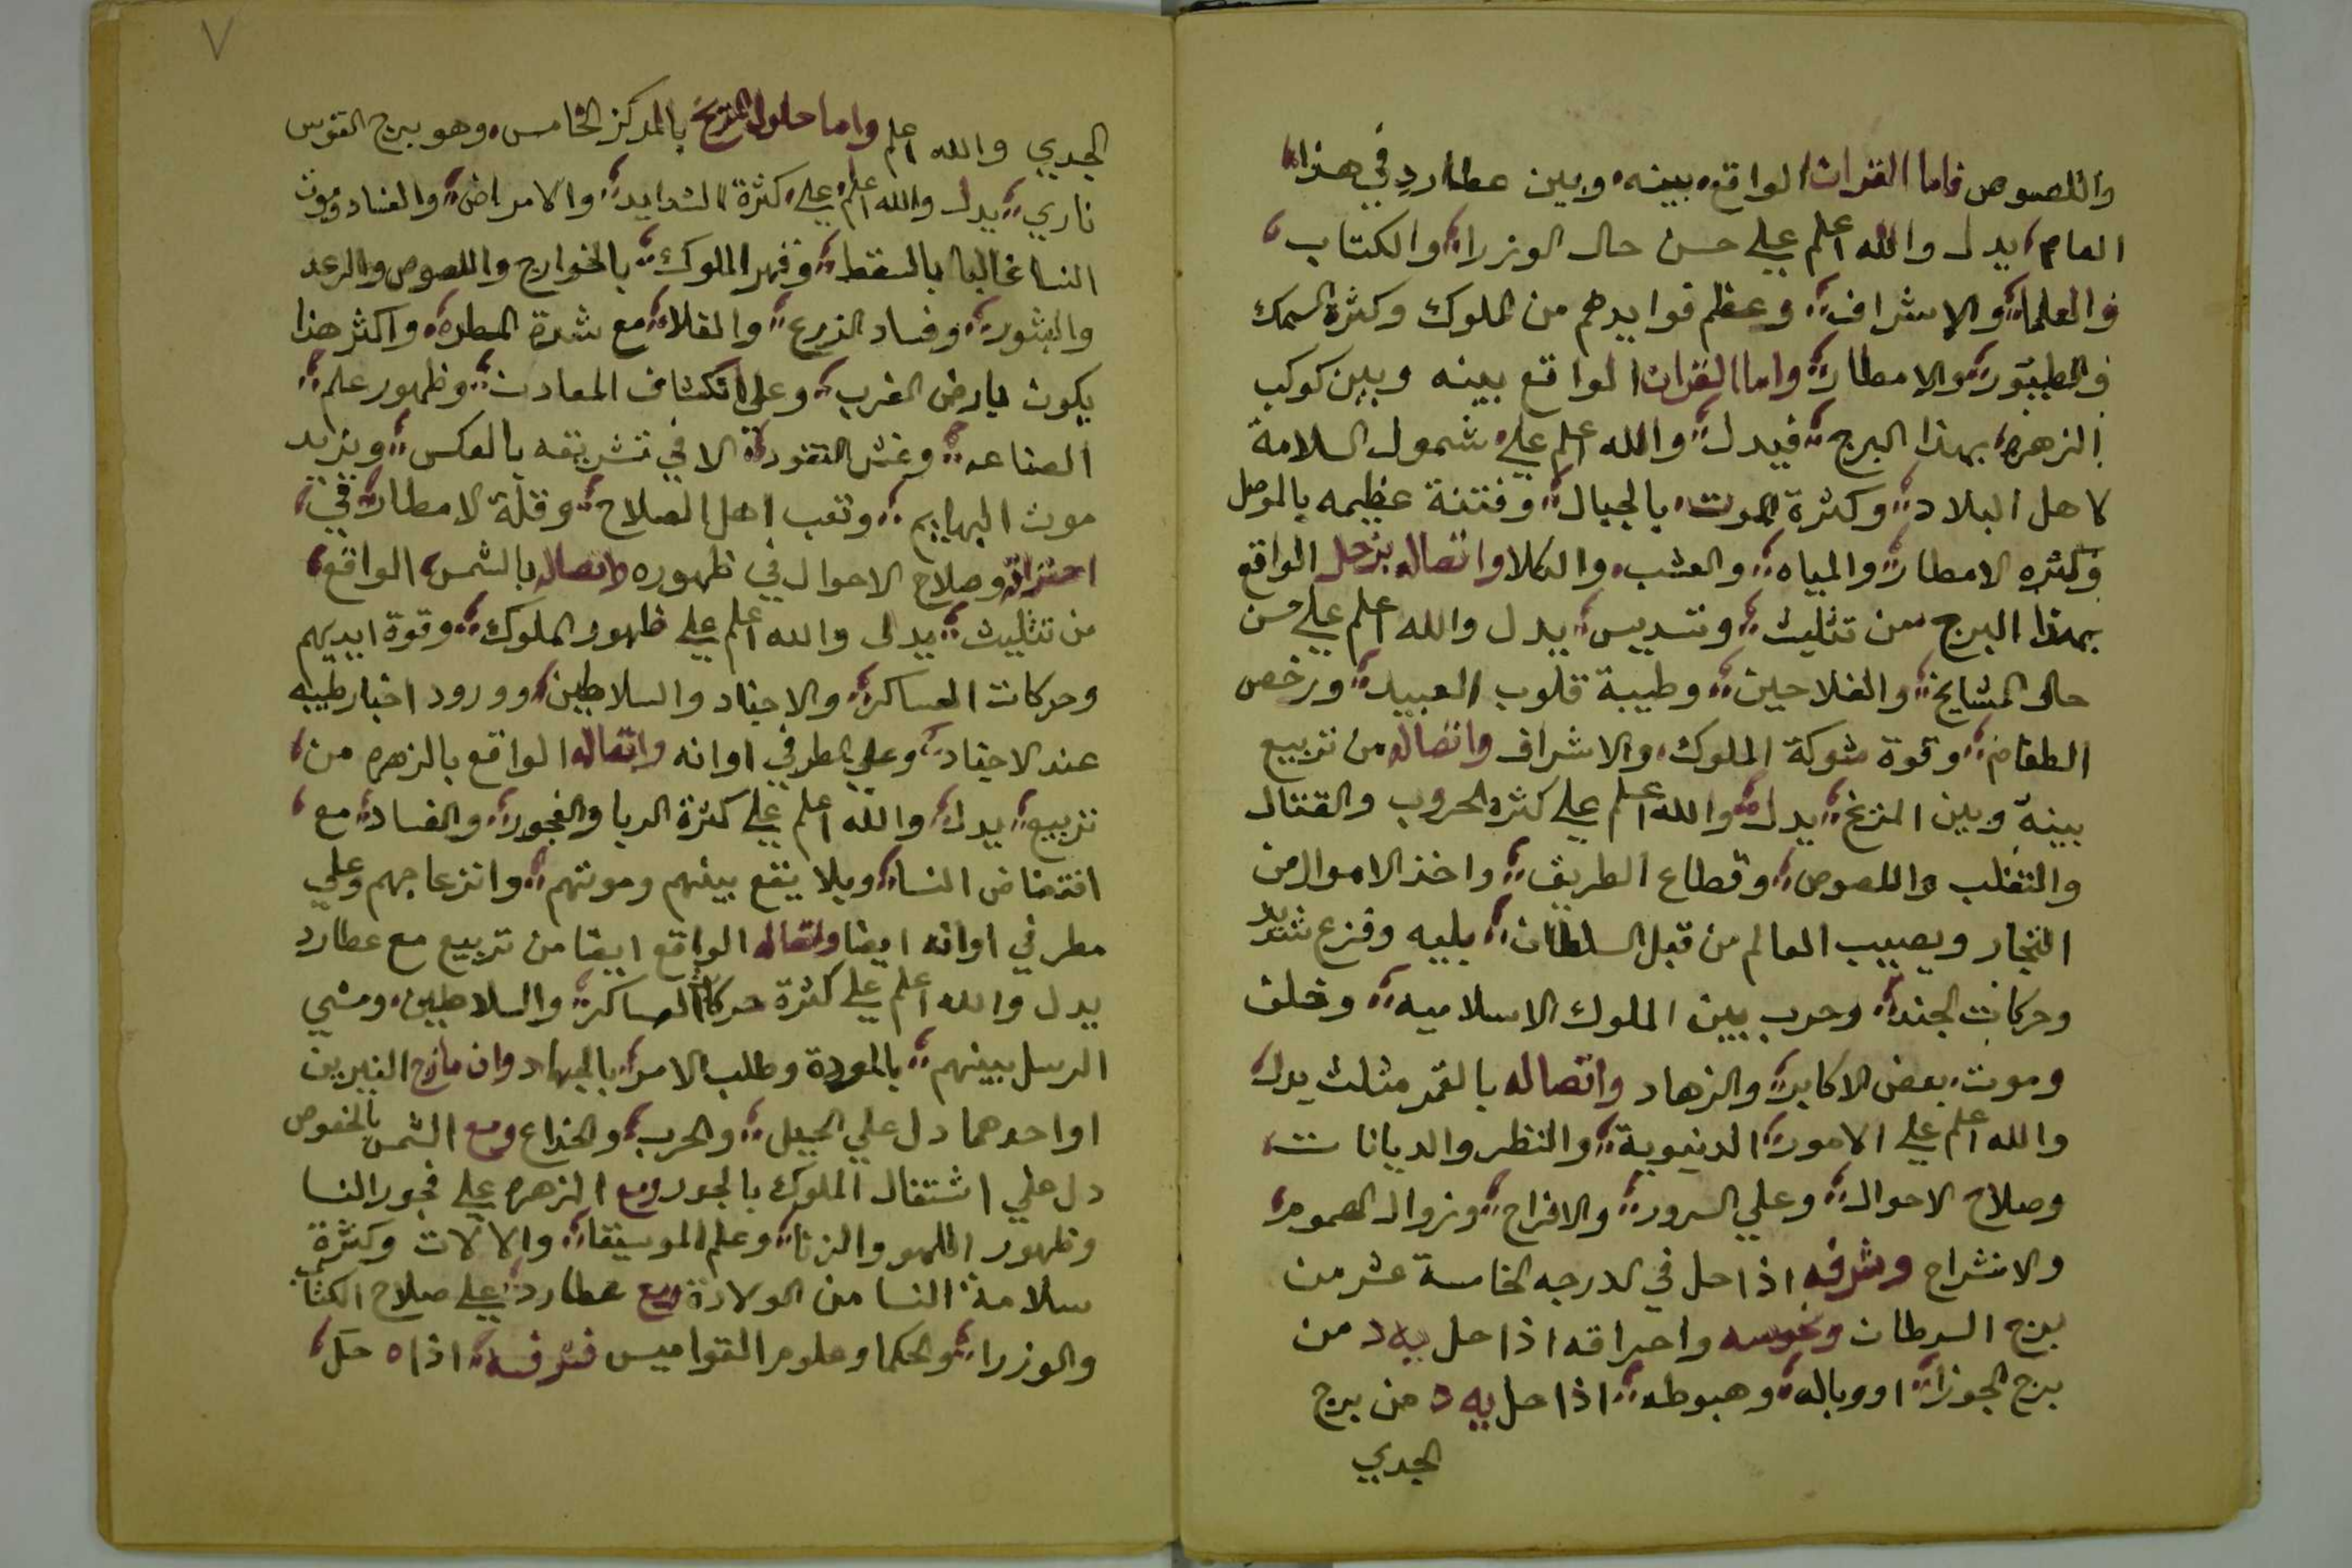 واللصوص فاما القران الواقع بينه وبين عطارد في هذا
العام يدل والله اعلم علي حسن حال الوزرا والكتاب
والعلما والاشراف وعظم فوايدهم من الملوك وكثرة السمك
والطيور والامطار واما القران الواقع بينه وبين كوكب
الزهره بهذا البرج فيدل والله اعلم علي شمول السلامة
لاهل البلاد وكثرة الموت بالجبال وفتنة عظيمه بالموصل
وكثره الامطار والمياه والعشب والكلا واتصاله بزحل الواقع
بهذا البرج من تثليث وتسديس يدل والله اعلم علي حسن
حال المشايخ والفلاحين وطيبة قلوب العبيد ورخص
الطعام وقوة شوكة الملوك والاشراف واتصاله من تربيع
بينه وبين المريخ يدل والله اعلم علي كثرة الحروب والقتال
والتغلب واللصوص وقطاع الطريق واخذ الاموال من
التجار ويصيب العالم من قبل السلطان بليه وفزع شديد
وحركات الجند وحرب بين الملوك الاسلاميه وخلف
وموت بعض الاكابر والزهاد واتصاله بالقمر مثلث يدل
والله اعلم علي الامور الدنيوية والنظر والديانات
وصلاح الاحوال وعلي السرور والافراح وزوال الهموم
والانشراح وشرفه اذا حل في الدرجه الخامسة عشر من
برج السرطان ونحوسه واحراقه اذا حل يه د من
برج الجوزا او وباله وهبوطه اذا حل يه د من برج
الجدي
٧
الجدي والله اعلم واما حلول المريخ بالمركز الخامس وهو برج القوس
ناري يدل والله اعلم علي كثرة الشدايد والامراض والفساد وموت
النسا غالبا بالسقط وقهر الملوك بالخوارج واللصوص والرعد
والبثور وفساد الزرع والغلا مع شدة المطره واكثر هذا
يكون بارض المغرب وعلي انكشاف المعادن وظهور علم
الصناعه وغش النقود الا في تشريقه بالعكس ويزيد
موت البهايم وتعب اهل الصلاح وقلة الامطار في
احتراقه وصلاح الاحوال في ظهوره واتصاله بالشمس الواقع
من تثليث يدل والله اعلم علي ظهور الملوك وقوة ايديهم
وحركات العساكر والاجناد والسلاطين وورود اخبار طيبه
عند الاجناد وعلي المطر في اوانه واتصاله الواقع بالزهره من
تربيع يدل والله اعلم علي كثرة الربا والفجور والفساد مع
افتضاض النسا وبلا يقع بينهم وموتهم وانزعاجهم وعلي
مطر في اوانه ايضا واتصاله الواقع ايضا من تربيع مع عطارد
يدل والله اعلم علي كثرة حركات العساكر والسلاطين ومشي
الرسل بينهم بالمودة وطلب الامرا بالجهاد وان مازج النيرين
او احدهما دل علي الحيل والحرب والخداع ومع الشمس بالخصوص
دل علي اشتغال الملوك بالجور ومع الزهره علي فجور النسا
وظهور اللهو والزنا وعلم الموسيقا والالات وكثرة
سلامة النسا من الولادة ومع عطارد علي صلاح الكتاب
والوزرا والحكما وعلوم القواميس فشرفه اذا ه حل